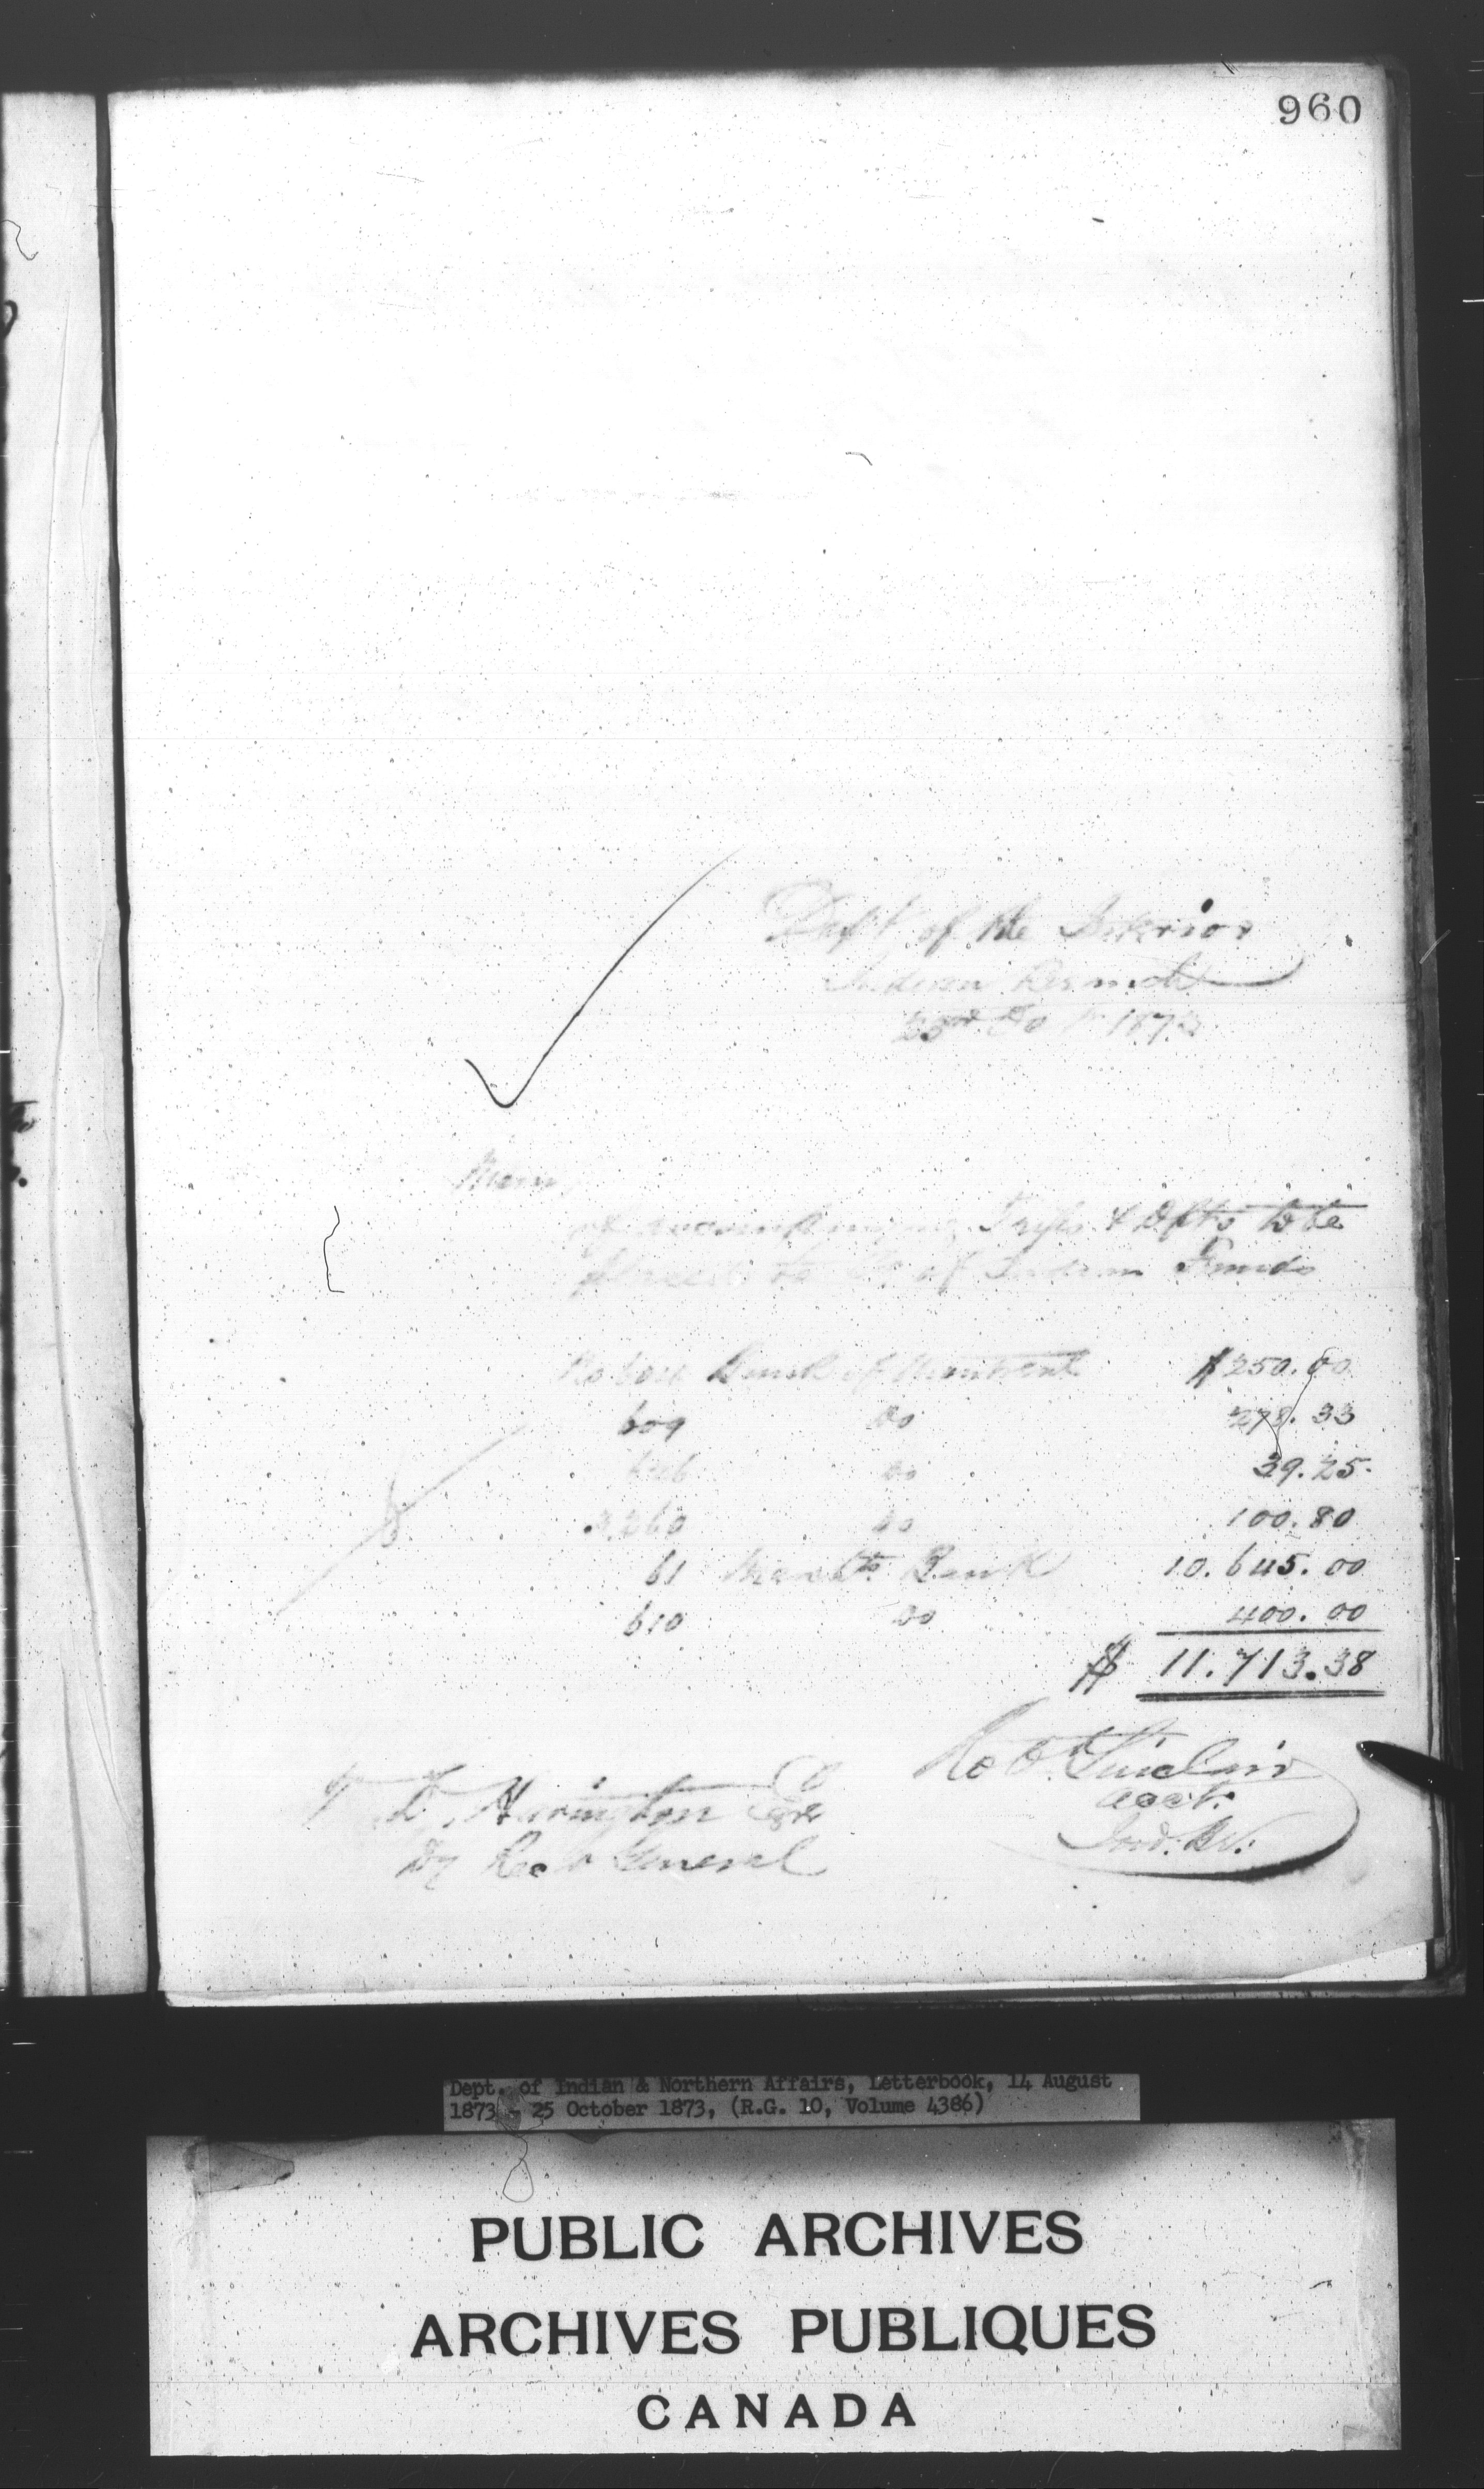 960
Dept of the Interior
Indian Branch
23rd Oct 1873
Memo
of accompanying Drfts & Dpts to be
placed to Cr of Indian Funds
Bank of Montreal $250.00
609 Do 278.33
Do 39.25
Do 100.80
61 Merchts Bank 10.645.00
610 Do 400.00
$ 11.713.38
T. D. Harington Esqre
Dy Rec'r General
Robt Sinclair
acct.
Ind. Br.
Dept. of Indian & Northern Affairs, Letterbook, 14 August
1873 - 25 October 1873, (R.G. 10, Volume 4386)
PUBLIC ARCHIVES
ARCHIVES PUBLIQUES
CANADA